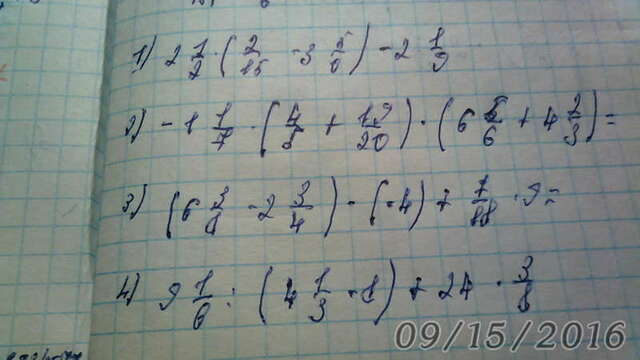 1) 2 1/2 · (2/15 - 3 5/6) - 2 1/9
2) - 1 1/7 · (4/5 + 19/20) · (6 5/6 + 4 2/3) =
3) (6 3/8 - 2 3/4) - (-4) + 7/18 · 9 =
4) 9 1/6 : (4 1/3 - 8) + 24 · 3/8
09/15/2016